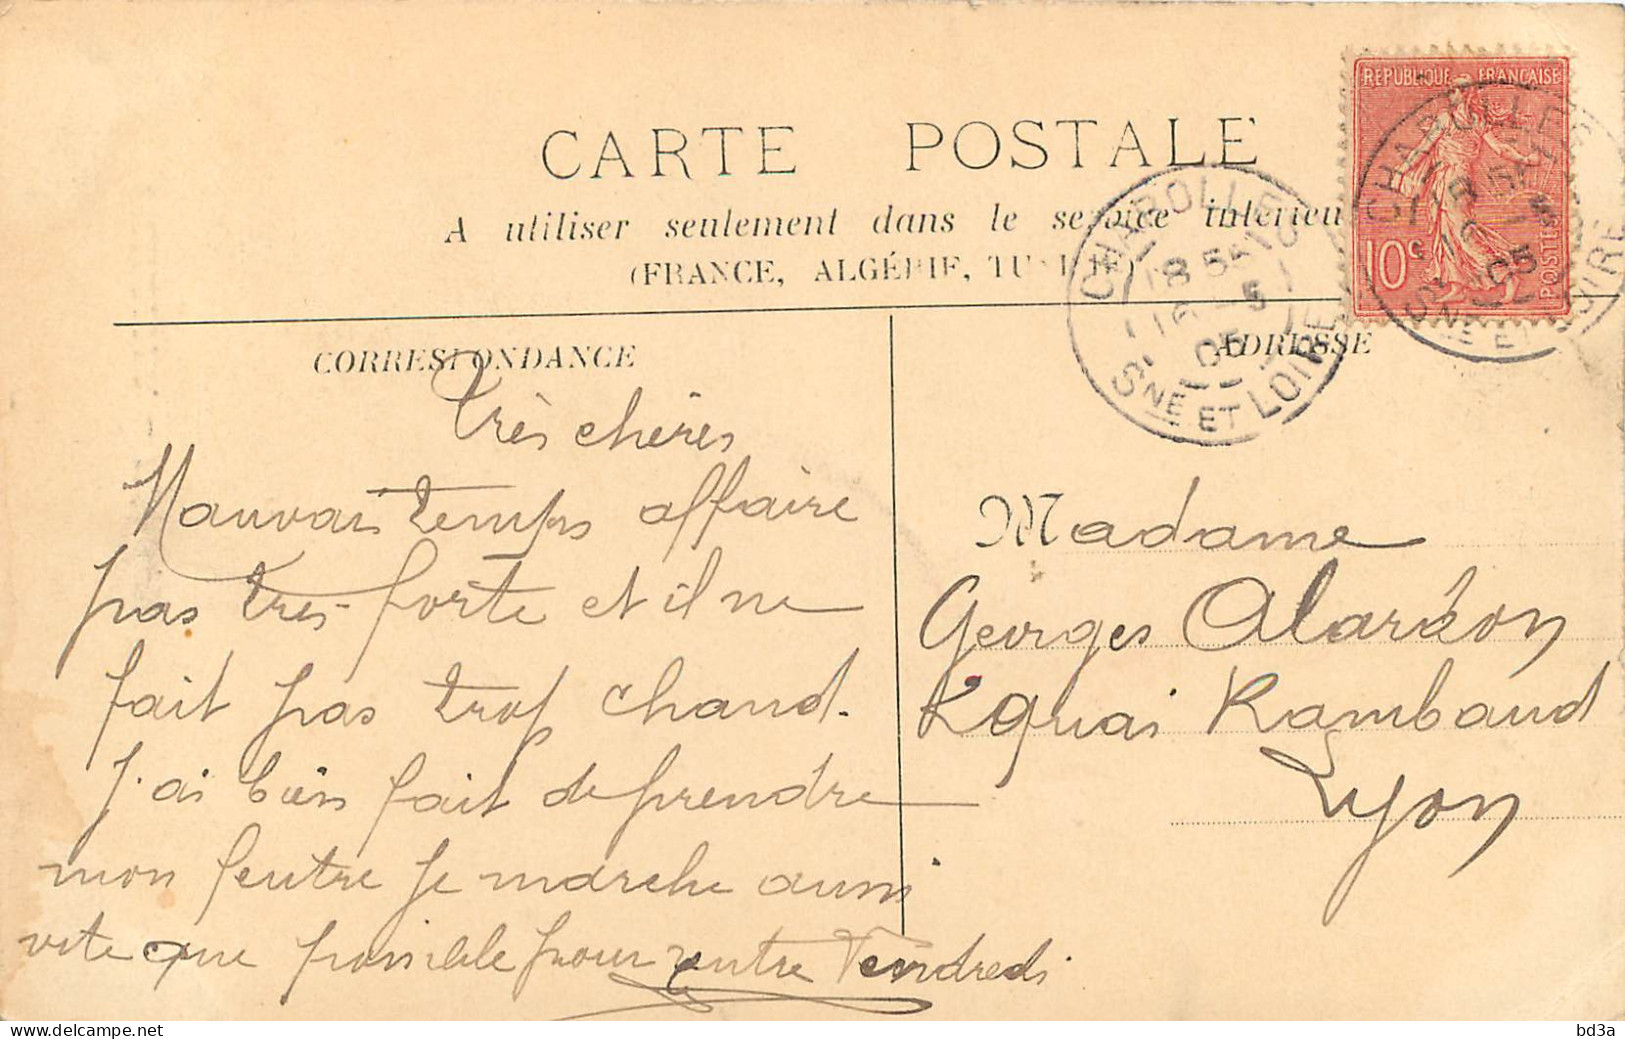 CARTE POSTALE
A utiliser seulement dans le service intérieur
(FRANCE, ALGÉRIE, TUNISIE)
REPUBLIQUE FRANÇAISE
10c POSTES
CHAROLLES
18
16 - 5
05
SNE ET LOIRE
CHAROLLES
18
16 - 5
05
SNE ET LOIRE
CORRESPONDANCE
Très chères
Mauvais temps affaire
pas très forte et il ne
fait pas trop chaud.
J'ai bien fait de prendre
mon feutre je marche aussi
vite que possible pour rentre Vendredi
ADRESSE
Madame
Georges
quai Rambaud
Lyon
https://www.delcampe.net
bd3a